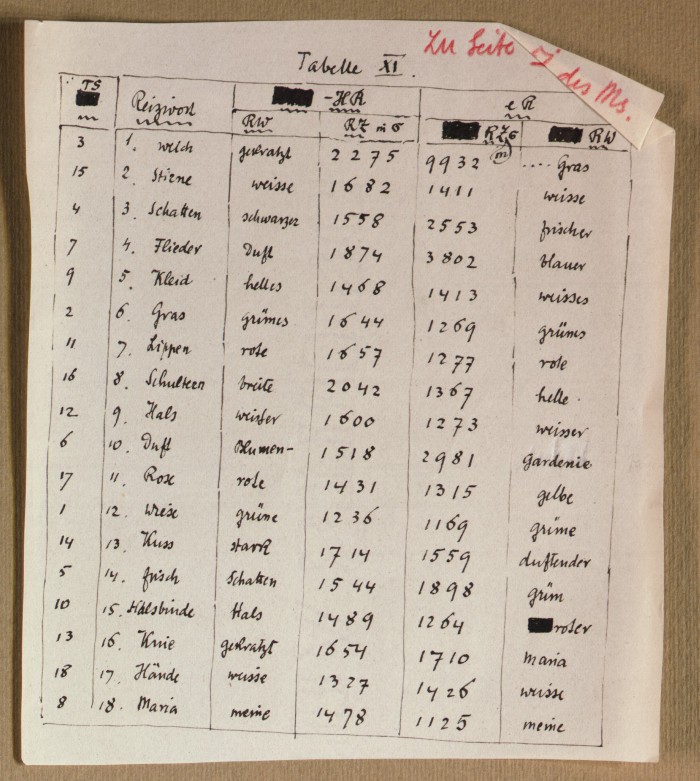 Zu Seite 51
des Ms.
Tabelle XI.
TS Reizwort -HR eR
RW RZ in σ RZσ (m) RW
3 1. welch gekratzt 2275 9932 .... Gras
15 2. Stirne weisse 1682 1411 weisse
4 3. Schatten schwarzer 1558 2553 frischer
7 4. Flieder Duft 1874 3802 blauer
9 5. Kleid helles 1468 1413 weisses
2 6. Gras grünes 1644 1269 grünes
11 7. Lippen rote 1657 1277 rote
16 8. Schultern breite 2042 1367 helle
12 9. Hals weisser 1600 1273 weisser
6 10. Duft Blumen- 1518 2981 Gardenie
17 11. Rose rote 1431 1315 gelbe
1 12. Wiese grüne 1236 1169 grüne
14 13. Kuss stark 1714 1559 duftender
5 14. frisch Schatten 1544 1898 grün
10 15. Halsbinde Hals 1489 1264 roter
13 16. Knie gekratzt 1654 1710 Maria
18 17. Hände weisse 1327 1426 weisse
8 18. Maria meine 1478 1125 meine